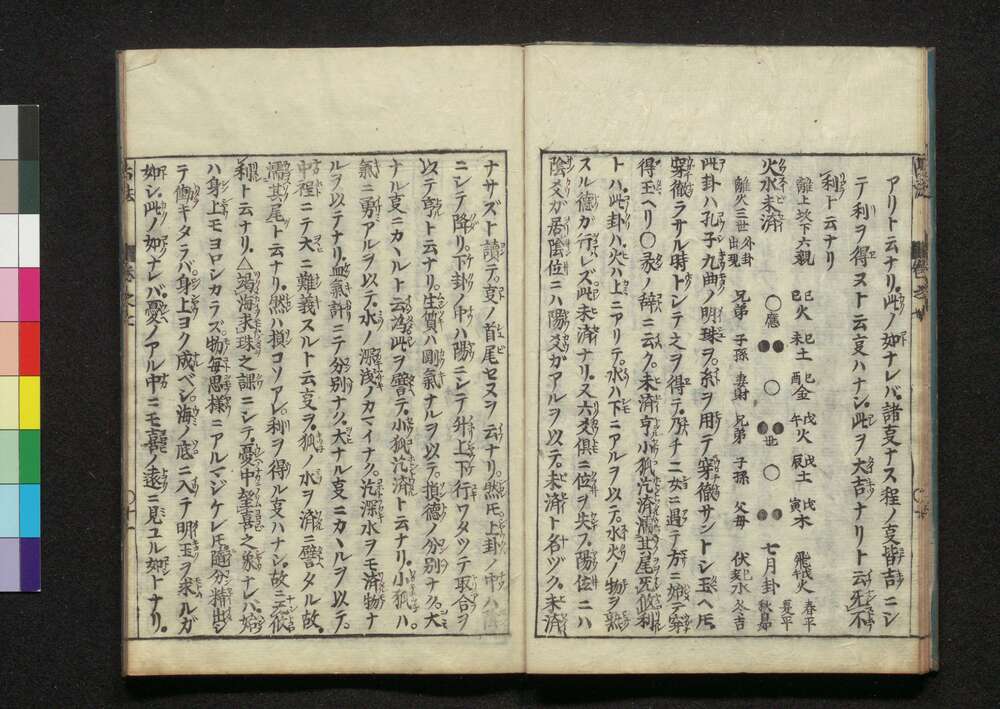 アリト云ナリ。此ノ如ナレバ、諸㕝ナス程ノ㕝皆吉ニシ
テ利ヲ得ズト云㕝ハナシ。此ヲ大吉ナリト云无不
利ト云ナリ
離上坎下六親 巳火 巳未土 巳酉金 戊午火 戊辰土 戊寅木 飛戊午火 春平 夏平
火水未済 ○應 ●● ○ ●●世 ○ ●● 七月卦
離火三世 外卦出現 兄弟 子孫 妻財 兄弟 子孫 父母 伏己亥水 冬吉 秋凶
此卦ハ孔子九曲ノ明珠ヲ。糸ヲ用テ穿徹サントシ玉ヘ𪜈。
穿徹ラサル時トシテ之ヲ得テ。乃チ二女ニ遇テ方ニ始テ穿
得玉ヘリ○彖ノ辞ニ云ク。未済亨小狐汔済濡其尾无攸利
ト。此卦ハ。火ハ上ニアリテ。水ハ下ニアルヲ以テ。水火ノ物ヲ
スル徳ガ行レズ此未済ナリ。又六爻倶ニ位ヲ失フ。陽位ニハ
陰爻ガ居陰位ニハ陽爻ガアルヲ以テ。未済ト名ヅク。未済
ナサズト讀テ。㕝ノ首尾セヌヲ云ナリ。然𪜈。上卦ノ中ハ
ニシテ降リ。下卦ノ中ハ陽ニシテ升上下行ワタツテ取合ヲ
以テ亨ト云ナリ。生質ハ剛氣ナルヲ以テ。損徳ノ分別ナク。大
ナル㕝ニカヽルト云爲此ヲ譬テ。小狐汔済ト云ナリ。小狐ハ
氣ニ勇アルヲ以テ。水ノ深浅ノカマイナク。汔深水ヲモ済物ナ
ルヲ以テナリ。血氣計ニテ分別ナク。大ナル㕝ニカヽルヲ以テ。
中程ニテ大ニ難義スルト云㕝ヲ。狐ノ水ヲ済ニ譬タル故。
濡其尾ト云ナリ。然ハ損コソアレ。利ヲ得ル㕝ハナシ。故ニ无攸
利ト云ナリ。△竭海求珠之課ニシテ。憂中望喜之象ナレバ。始
ハ身上モヨロシカラズ。物毎思様ニアルマジケレ𪜈隨分精出シ
テ働キタラバ身上ヨク成ベシ。海ノ底ニ入テ明玉ヲ求ルガ
如シ。此ノ如ナレバ。憂ノアル中ニモ。喜ハ遠ニ見ユル如トナリ。